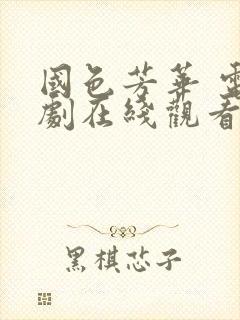 國色芳華 電
劇在綫觀看
黑棋芯子